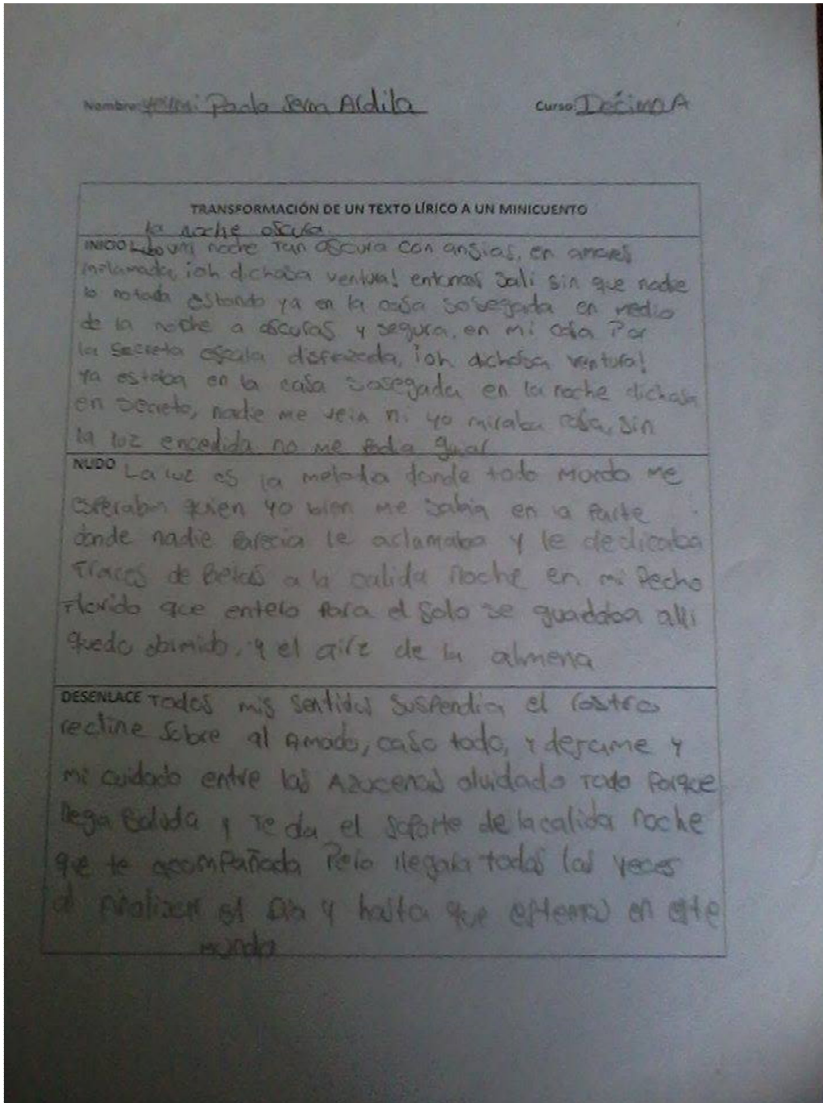 Nombre: Paola Aldila Curso: Décimo A
TRANSFORMACIÓN DE UN TEXTO LÍRICO A UN MINICUENTO
la noche oscura
INICIO noche tan oscura con ansias, en amores
inflamada, ¡oh dichosa ventura! entonces Sali sin que nadie
lo notada estando ya en la casa sosegada en medio
de la noche a oscuras y segura, en mi Por
la Secreta escala disfrazada, ¡oh dichosa ventura!
ya estaba en la casa sosegada en la noche dichosa
en secreto, nadie me veia ni yo miraba cosa, sin
la luz encedida no me podia guiar
NUDO La luz es la donde todo mundo me
esperaban quien yo bien me sabia en la parte
donde nadie parecia le aclamaba y le dedicaba
de a la calida noche en mi Pecho
florido que entero Para el solo se guadaba alli
quedo dormido, y el aire de la almena
DESENLACE Todos mis sentidos suspendia el rostro
recline sobre al Amado, caso todo, y dejame y
mi cuidado entre las Azucenas olvidado todo Porque
llega y te da el soporte de la calida noche
que te acompañada Pero llegara todas las veces
al finalizar el Dia y hasta que estemos en este
mundo